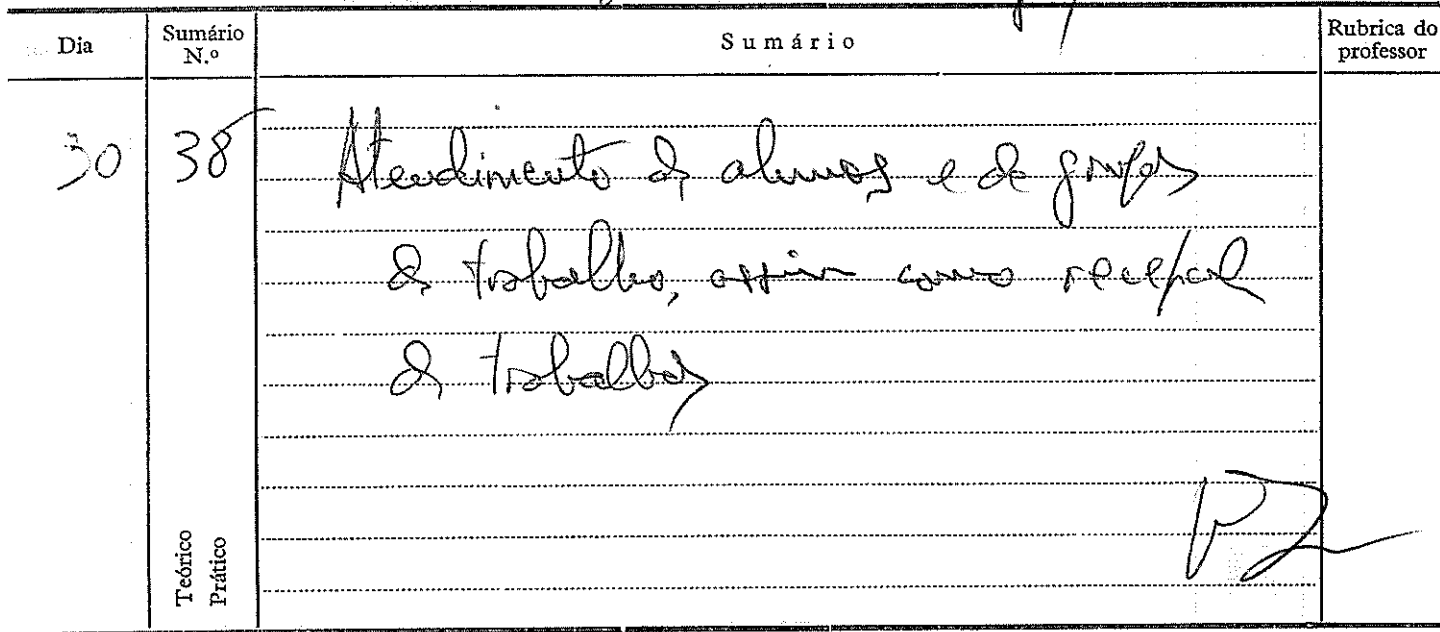 Dia Sumário N.º Sumário Rubrica do professor
30 38 Atendimento de alunos e de grupos
de trabalho, assim como recepção
de trabalhos
Teórico
Prático